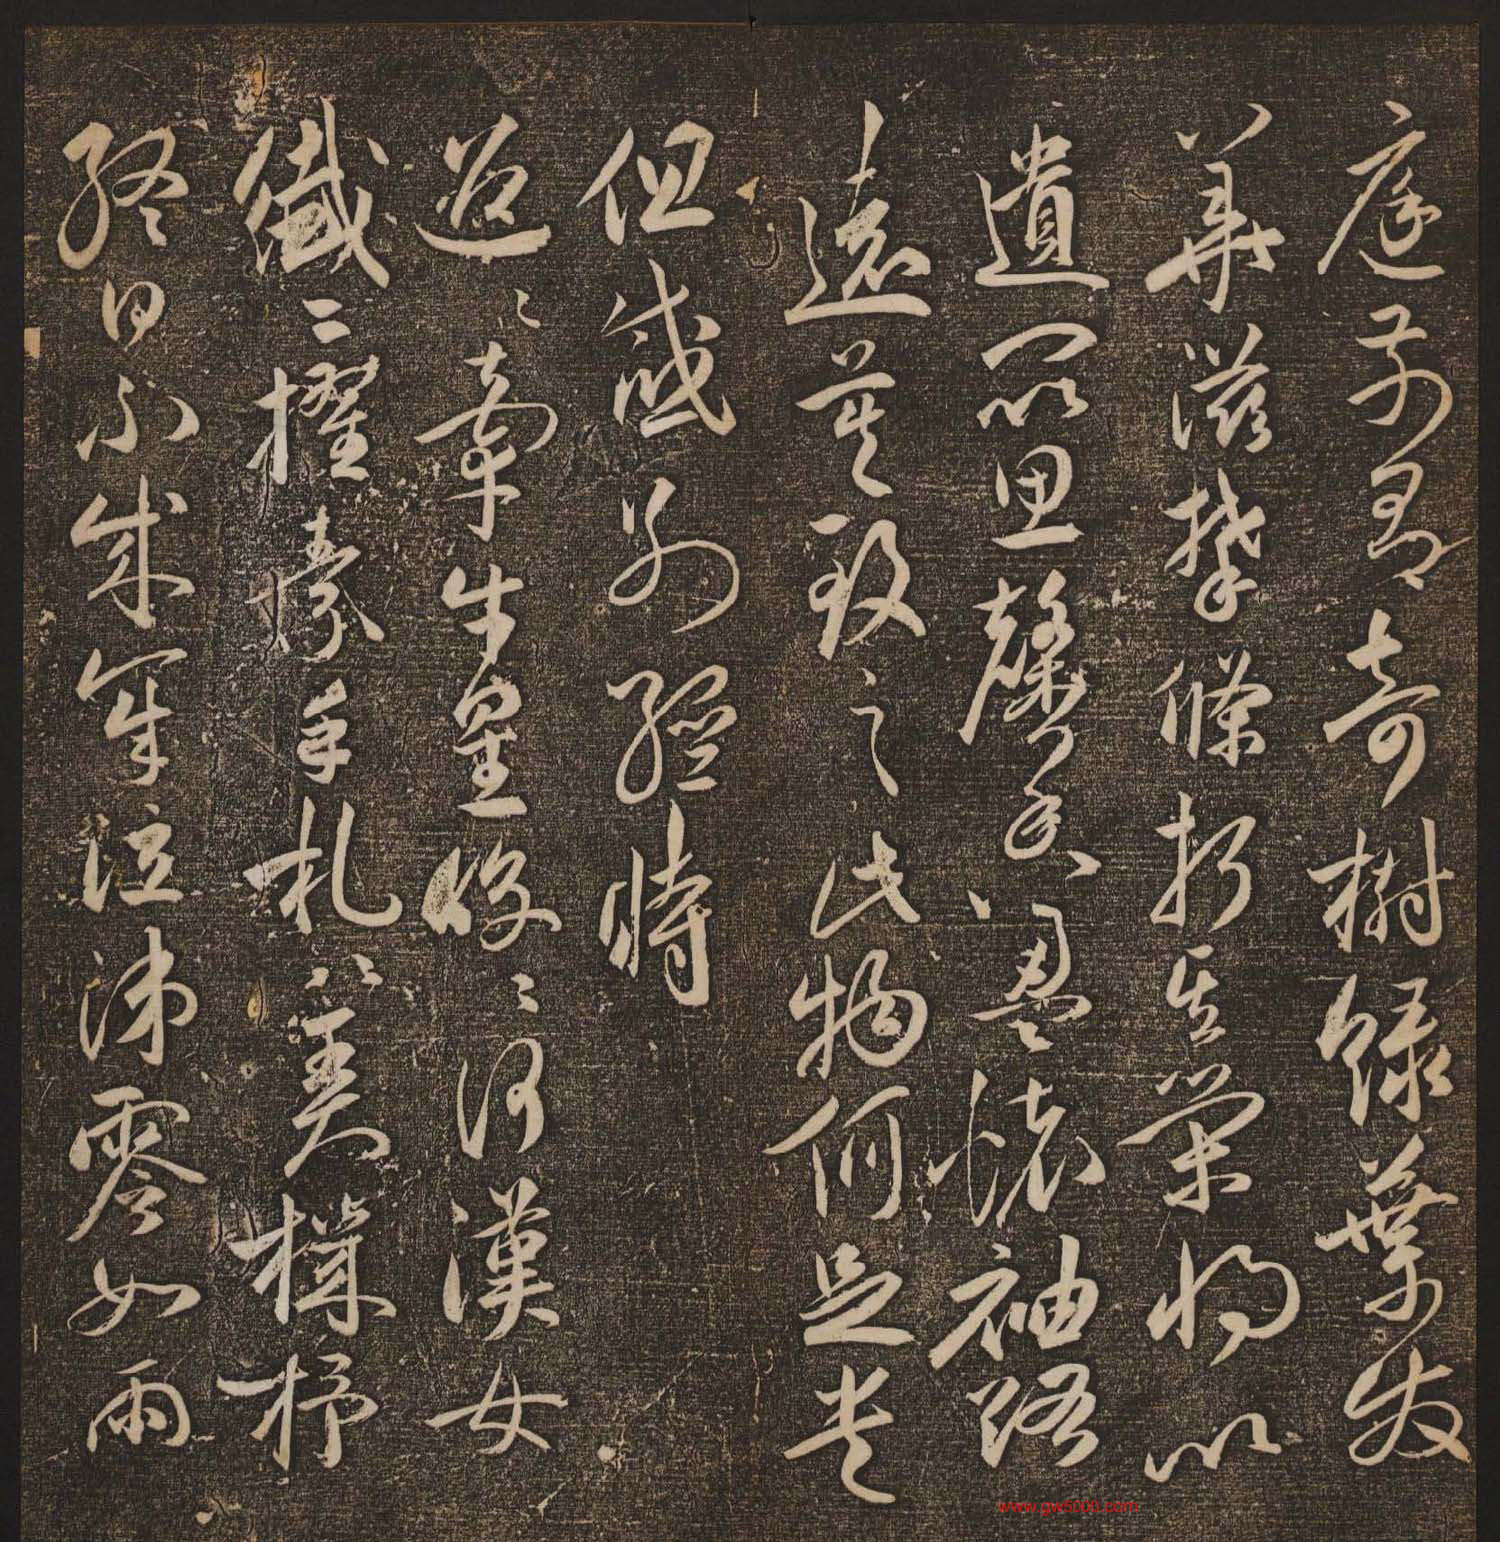 庭前有奇樹綠葉發
華滋攀條折其榮將以
遺所思馨香盈懷袖路
遠莫致之此物何足貴
但感別經時
迢〻牽牛星皎〻河漢女
纖〻擢素手札〻弄機杼
終日不成章泣涕零如雨
www.gw5000.com